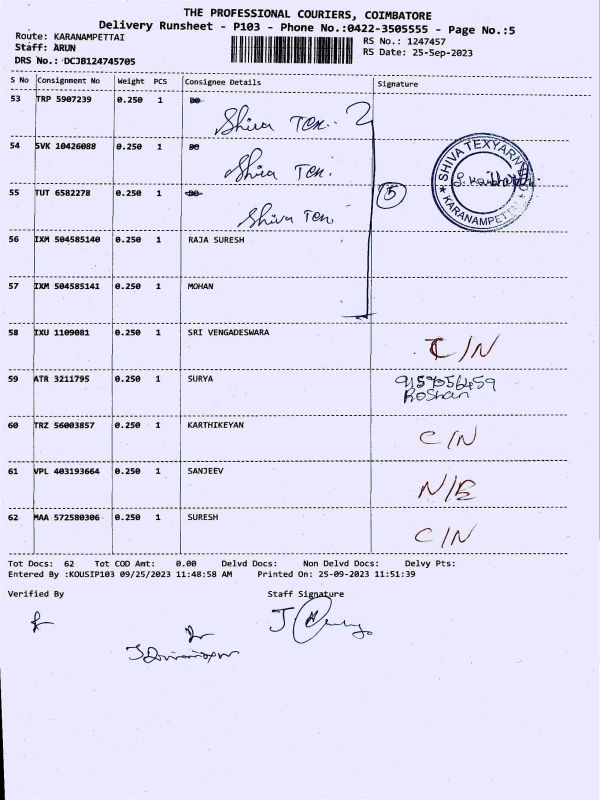 THE PROFESSIONAL COURIERS, COIMBATORE
Delivery Runsheet - P103 - Phone No.:0422-3505555 - Page No.:5
Route: KARANAMPETTAI RS No.: 1247457
Staff: ARUN RS Date: 25-Sep-2023
DRS No.: DCJB124745705
S No Consignment No Weight PCS Consignee Details Signature
53 TRP 5907239 0.250 1 DO Shiva Tex.
54 SVK 10426088 0.250 1 DO Shiva Tex.
55 TUT 6582278 0.250 1 DO Shiva Tex
5
SHIVA TEXYARN
KARANAMPETTAI
56 IXM 504585140 0.250 1 RAJA SURESH
57 IXM 504585141 0.250 1 MOHAN
58 IXU 1109081 0.250 1 SRI VENGADESWARA C/N
59 ATR 3211795 0.250 1 SURYA 9159056459
Roshan
60 TRZ 56003857 0.250 1 KARTHIKEYAN C/N
61 VPL 403193664 0.250 1 SANJEEV N/E
62 MAA 572580306 0.250 1 SURESH C/N
Tot Docs: 62 Tot COD Amt: 0.00 Delvd Docs: Non Delvd Docs: Delvy Pts:
Entered By :KOUSIP103 09/25/2023 11:48:58 AM Printed On: 25-09-2023 11:51:39
Verified By Staff Signature